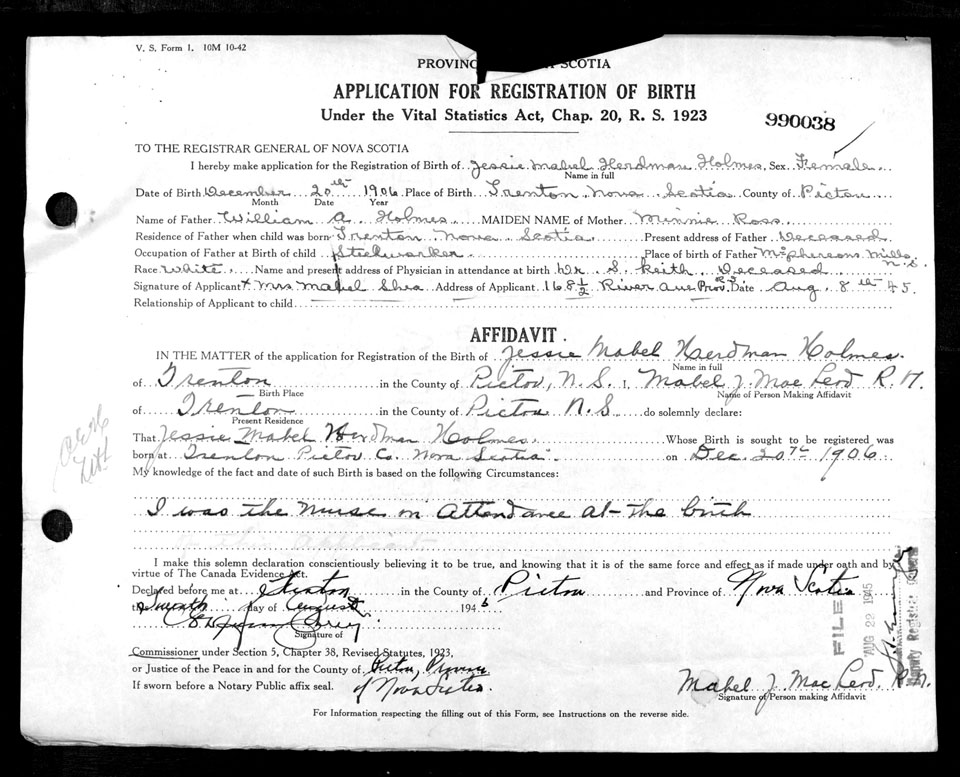 V. S. Form 1. 10M 10-42
PROVINC SCOTIA
APPLICATION FOR REGISTRATION OF BIRTH
Under the Vital Statistics Act, Chap. 20, R. S. 1923
990038
TO THE REGISTRAR GENERAL OF NOVA SCOTIA
I hereby make application for the Registration of Birth of Jessie Mabel Herdman Holmes. Sex Female
Name in full
Date of Birth December 20th 1906 Place of Birth Trenton Nova Scotia County of Pictou
Month Date Year
Name of Father William A. Holmes MAIDEN NAME of Mother Minnie Ross
Residence of Father when child was born Trenton Nova Scotia Present address of Father Deceased
Occupation of Father at Birth of child Steelworker Place of birth of Father McPhersons Mills N.S.
Race White. Name and present address of Physician in attendance at birth Dr S. Keith Deceased
Signature of Applicant x Mrs Mabel Shea Address of Applicant 168 1/2 River Ave Prov. R.I. Date Aug 8th 45.
Relationship of Applicant to child
AFFIDAVIT.
IN THE MATTER of the application for Registration of the Birth of Jessie Mabel Herdman Holmes.
Name in full
of Trenton in the County of Pictou, N.S. I Mabel J. MacLeod R.N.
Birth Place Name of Person Making Affidavit
of Trenton in the County of Pictou N.S. do solemnly declare:
Present Residence
That Jessie Mabel Herdman Holmes. Whose Birth is sought to be registered was
born at Trenton Pictou Co. Nova Scotia on Dec. 20th 1906
My knowledge of the fact and date of such Birth is based on the following Circumstances:
I was the nurse in attendance at the birth
I make this solemn declaration conscientiously believing it to be true, and knowing that it is of the same force and effect as if made under oath and by
virtue of The Canada Evidence Act.
Declared before me at Trenton in the County of Pictou and Province of Nova Scotia
day of August 194
Signature of
Commissioner under Section 5, Chapter 38, Revised Statutes, 1923,
or Justice of the Peace in and for the County of Pictou, Province
If sworn before a Notary Public affix seal. of Nova Scotia.
FILED
AUG 22 1945
Deputy Registrar General
Mabel J. MacLeod. R.N.
Signature of Person making Affidavit
For Information respecting the filling out of this Form, see Instructions on the reverse side.